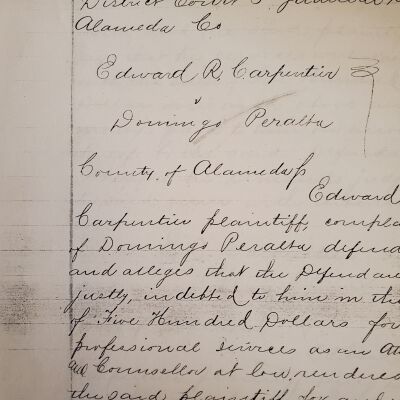 District Court 3. Judicial
Alameda Co
Edward R. Carpentier
v
Domingo Peralta
County of Alameda
Edward
Carpentier plaintiff, compla
of Domingo Peralta defend
and alleges that the Defendan
justly, indebted to him in the
of Five Hundred Dollars for
professional services as an At
and Counsellor at law, rendere
the said plaintiff for and